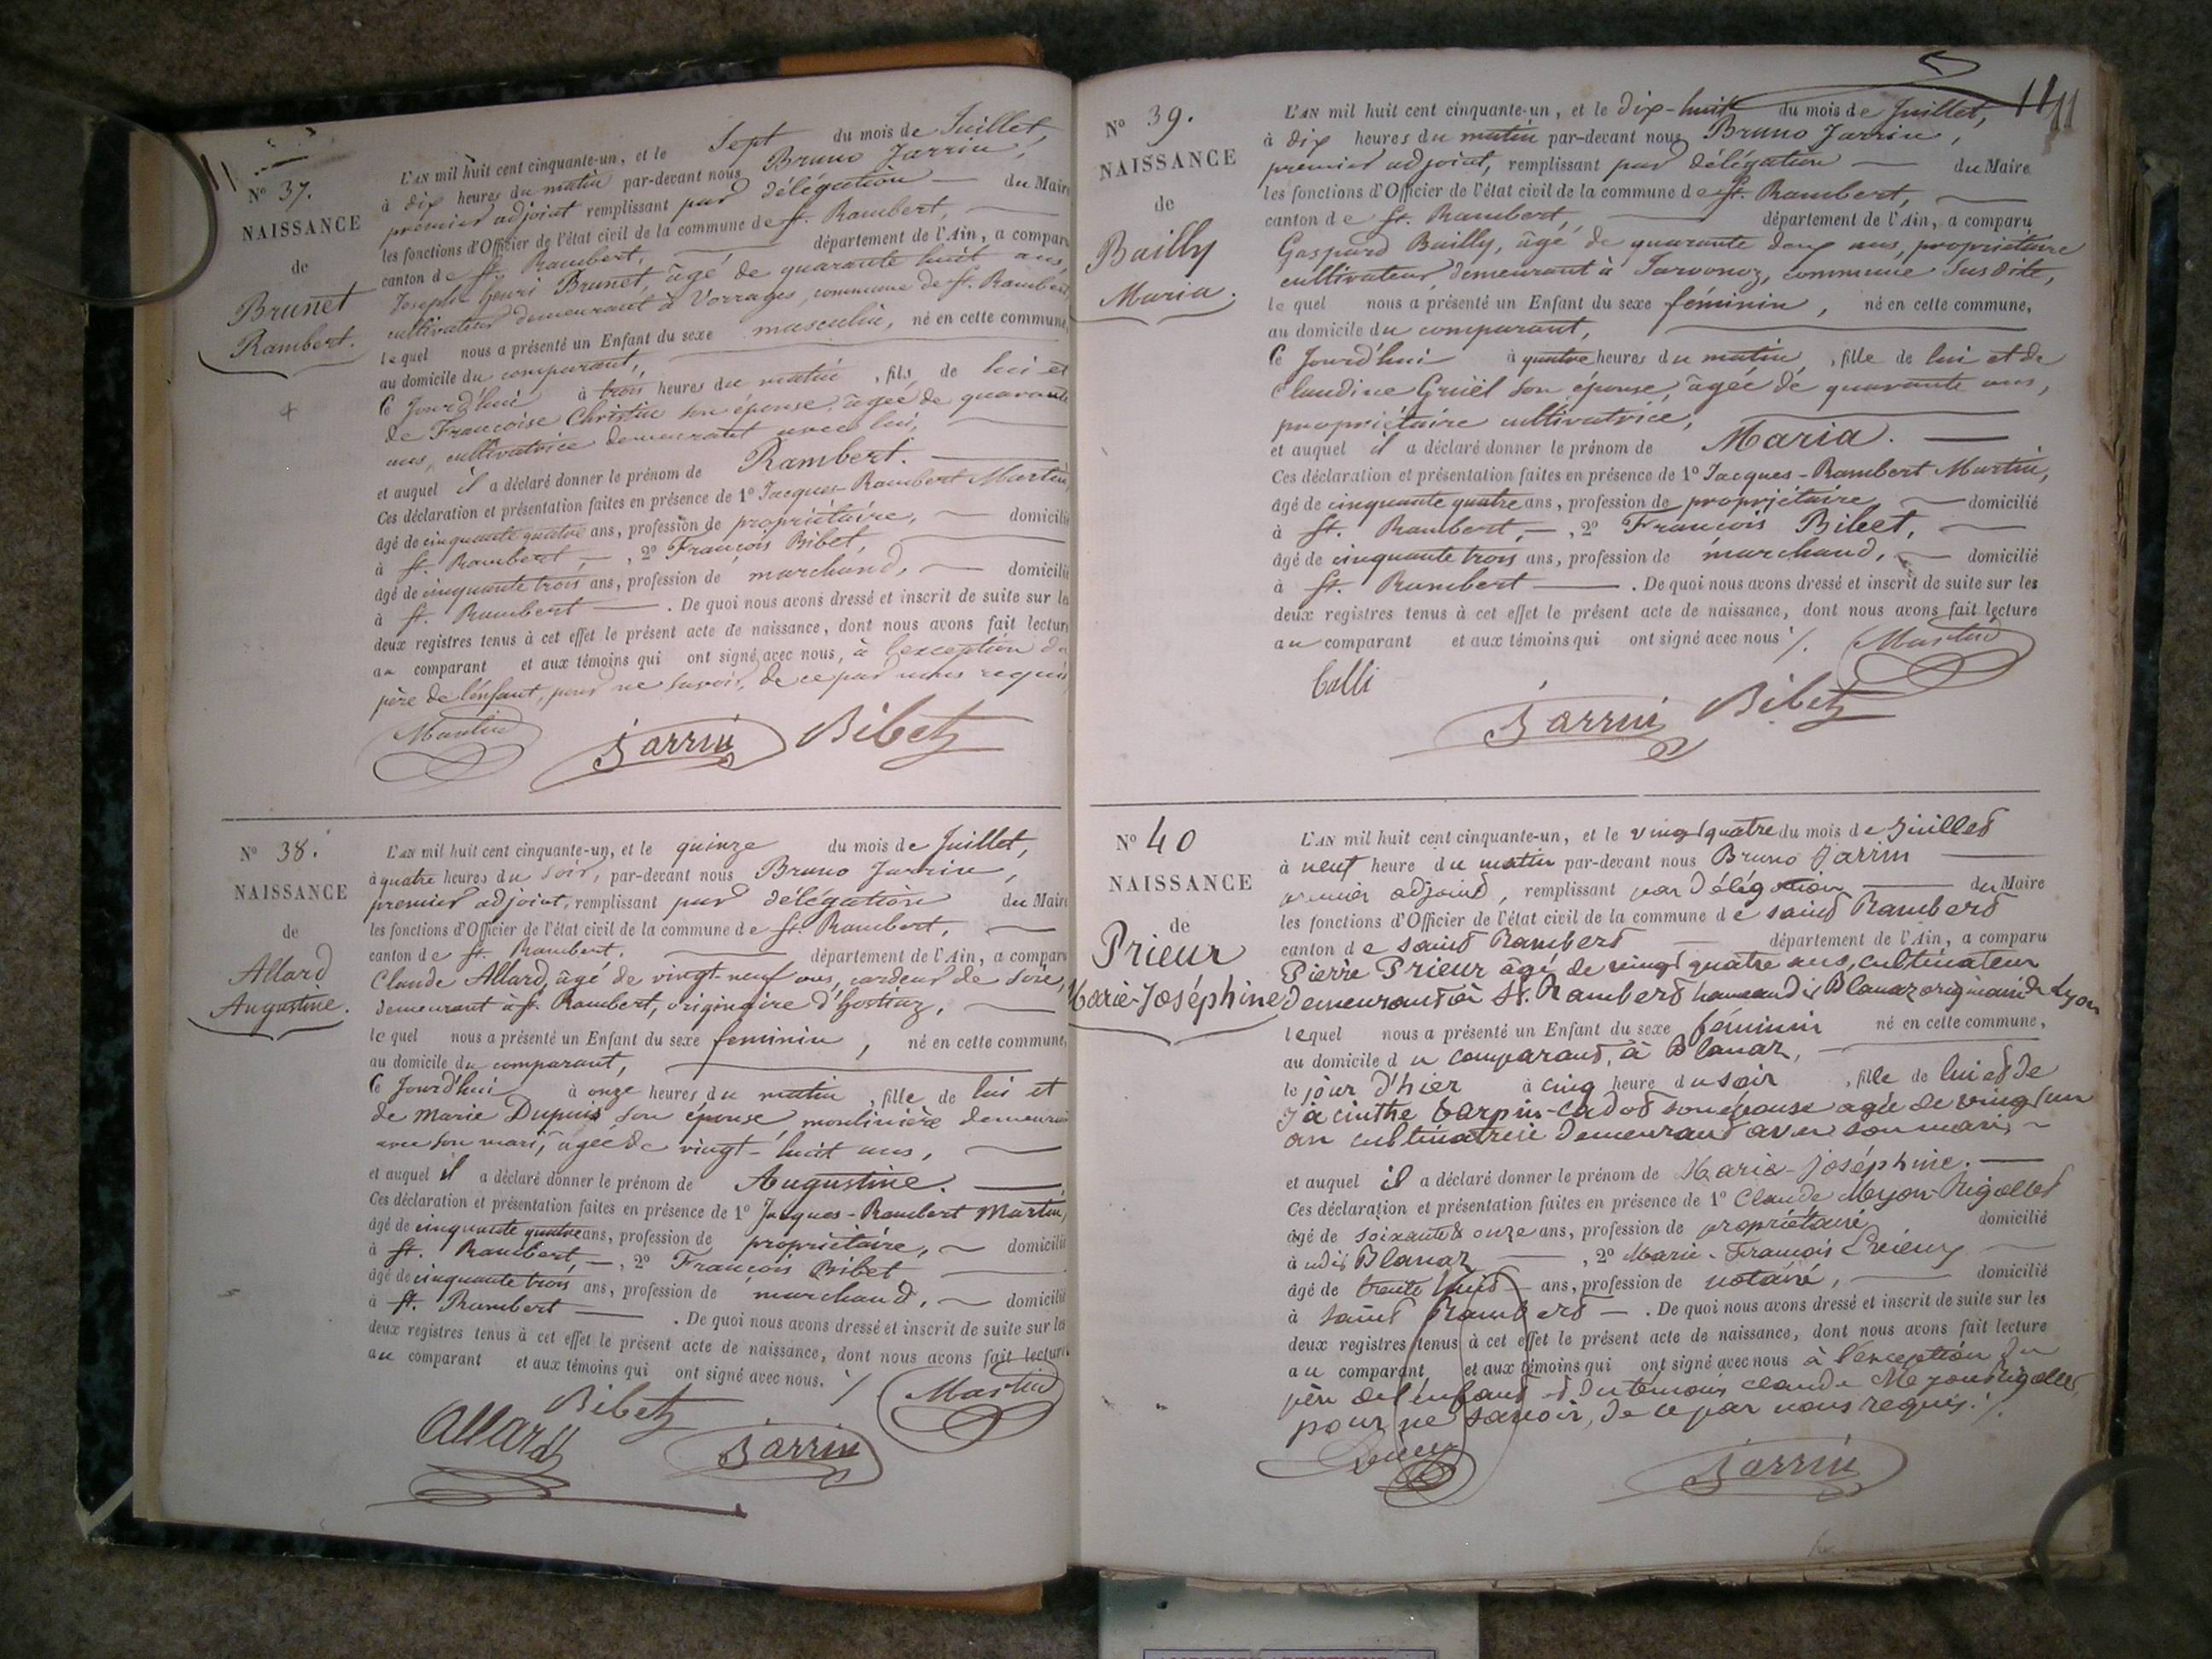 11
Nº 37.
NAISSANCE
de
Brunet
Rambert.
L'AN mil huit cent cinquante-un, et le Sept du mois de Juillet,
à dix heures du matin par-devant nous Bruno Jarrin,
premier adjoint remplissant par délégation du Maire
les fonctions d'Officier de l'état civil de la commune de St. Rambert,
canton de St. Rambert, département de l'Ain, a comparu
Joseph henri Brunet, âgé de quarante huit ans,
cultivateur demeurant à Vorrages, commune de St. Rambert
lequel nous a présenté un Enfant du sexe masculin, né en cette commune,
au domicile du comparant,
Ce Jourd'hui à trois heures du matin, fils de lui et
de Françoise Christin son épouse, âgée de quarante
ans, cultivatrice demeurant avec lui,
et auquel il a déclaré donner le prénom de Rambert.
Ces déclaration et présentation faites en présence de 1º Jacques-Rambert Martin,
âgé de cinquante quatre ans, profession de propriétaire, domicilié
à St. Rambert, 2º François Bibet,
âgé de cinquante trois ans, profession de marchand, domicilié
à St. Rambert. De quoi nous avons dressé et inscrit de suite sur les
deux registres tenus à cet effet le présent acte de naissance, dont nous avons fait lecture
au comparant et aux témoins qui ont signé avec nous, à l'exception du
père de l'enfant, pour ne savoir, de ce par nous requis
Martin Jarrin Bibet
Nº 38.
NAISSANCE
de
Allard
Augustine.
L'AN mil huit cent cinquante-un, et le quinze du mois de Juillet,
à quatre heures du soir, par-devant nous Bruno Jarrin,
premier adjoint, remplissant par délégation du Maire
les fonctions d'Officier de l'état civil de la commune de St. Rambert,
canton de St. Rambert. département de l'Ain, a comparu
Claude Allard, âgé de vingt-neuf ans, cardeur de soie,
demeurant à St. Rambert, originaire d'hostiaz,
lequel nous a présenté un Enfant du sexe feminin, né en cette commune,
au domicile du comparant,
Ce Jourd'hui à onze heures du matin, fille de lui et
de Marie Dupuis son épouse, moulinière demeurant
avec son mari, âgée de vingt-huit ans,
et auquel il a déclaré donner le prénom de Augustine.
Ces déclaration et présentation faites en présence de 1º Jacques-Rambert Martin,
âgé de cinquante quatre ans, profession de propriétaire, domicilié
à St. Rambert, 2º François Bibet
âgé de cinquante trois ans, profession de marchand, domicilié
à St. Rambert. De quoi nous avons dressé et inscrit de suite sur les
deux registres tenus à cet effet le présent acte de naissance, dont nous avons fait lecture
au comparant et aux témoins qui ont signé avec nous. /
Bibet Martin
Allard Jarrin
11
Nº 39.
NAISSANCE
de
Bailly
Maria.
L'AN mil huit cent cinquante-un, et le dix-huit du mois de Juillet,
à dix heures du matin par-devant nous Bruno Jarrin,
premier adjoint, remplissant par délégation du Maire
les fonctions d'Officier de l'état civil de la commune de St. Rambert,
canton de St. Rambert, département de l'Ain, a comparu
Gaspard Bailly, âgé de quarante deux ans, propriétaire
cultivateur, demeurant à Javornoz, commune susdite,
lequel nous a présenté un Enfant du sexe féminin, né en cette commune,
au domicile du comparant,
Ce Jourd'hui à quatre heures du matin, fille de lui et de
Claudine Gruël son épouse, âgée de quarante ans,
propriétaire cultivatrice,
et auquel il a déclaré donner le prénom de Maria.
Ces déclaration et présentation faites en présence de 1º Jacques-Rambert Martin,
âgé de cinquante quatre ans, profession de propriétaire, domicilié
à St. Rambert, 2º François Bibet,
âgé de cinquante trois ans, profession de marchand, domicilié
à St. Rambert. De quoi nous avons dressé et inscrit de suite sur les
deux registres tenus à cet effet le présent acte de naissance, dont nous avons fait lecture
au comparant et aux témoins qui ont signé avec nous /. Martin
Jarrin Bibet
Nº 40
NAISSANCE
de
Prieur
Marie-Joséphine
L'AN mil huit cent cinquante-un, et le vingt quatre du mois de juillet
à neuf heure du matin par-devant nous Bruno Jarrin
premier adjoint, remplissant par délégation du Maire
les fonctions d'Officier de l'état civil de la commune de saint Rambert
canton de saint Rambert département de l'Ain, a comparu
Pierre Prieur âgé de vingt quatre ans, cultivateur
demeurant à St. Rambert hameau de Blanaz originaire de Lyon
lequel nous a présenté un Enfant du sexe féminin né en cette commune,
au domicile du comparant, à Blanaz,
le jour d'hier à cinq heure du soir, fille de lui et de
Jacinthe Carpin-Cadot son épouse agée de vingt un
an cultivatrice demeurant avec son mari,
et auquel il a déclaré donner le prénom de Marie-Joséphine.
Ces déclaration et présentation faites en présence de 1º Claude Mezon Rigollet
âgé de soixante & onze ans, profession de propriétaire domicilié
à udit Blanaz, 2º Marie-François
âgé de trente huit ans, profession de notaire, domicilié
à saint Rambert. De quoi nous avons dressé et inscrit de suite sur les
deux registres tenus à cet effet le présent acte de naissance, dont nous avons fait lecture
au comparant et aux témoins qui ont signé avec nous à l'exception du
père de l'enfant et du témoin claude Mezon Rigollet,
pour ne savoir, de ce par nous requis. /.
Jarrin